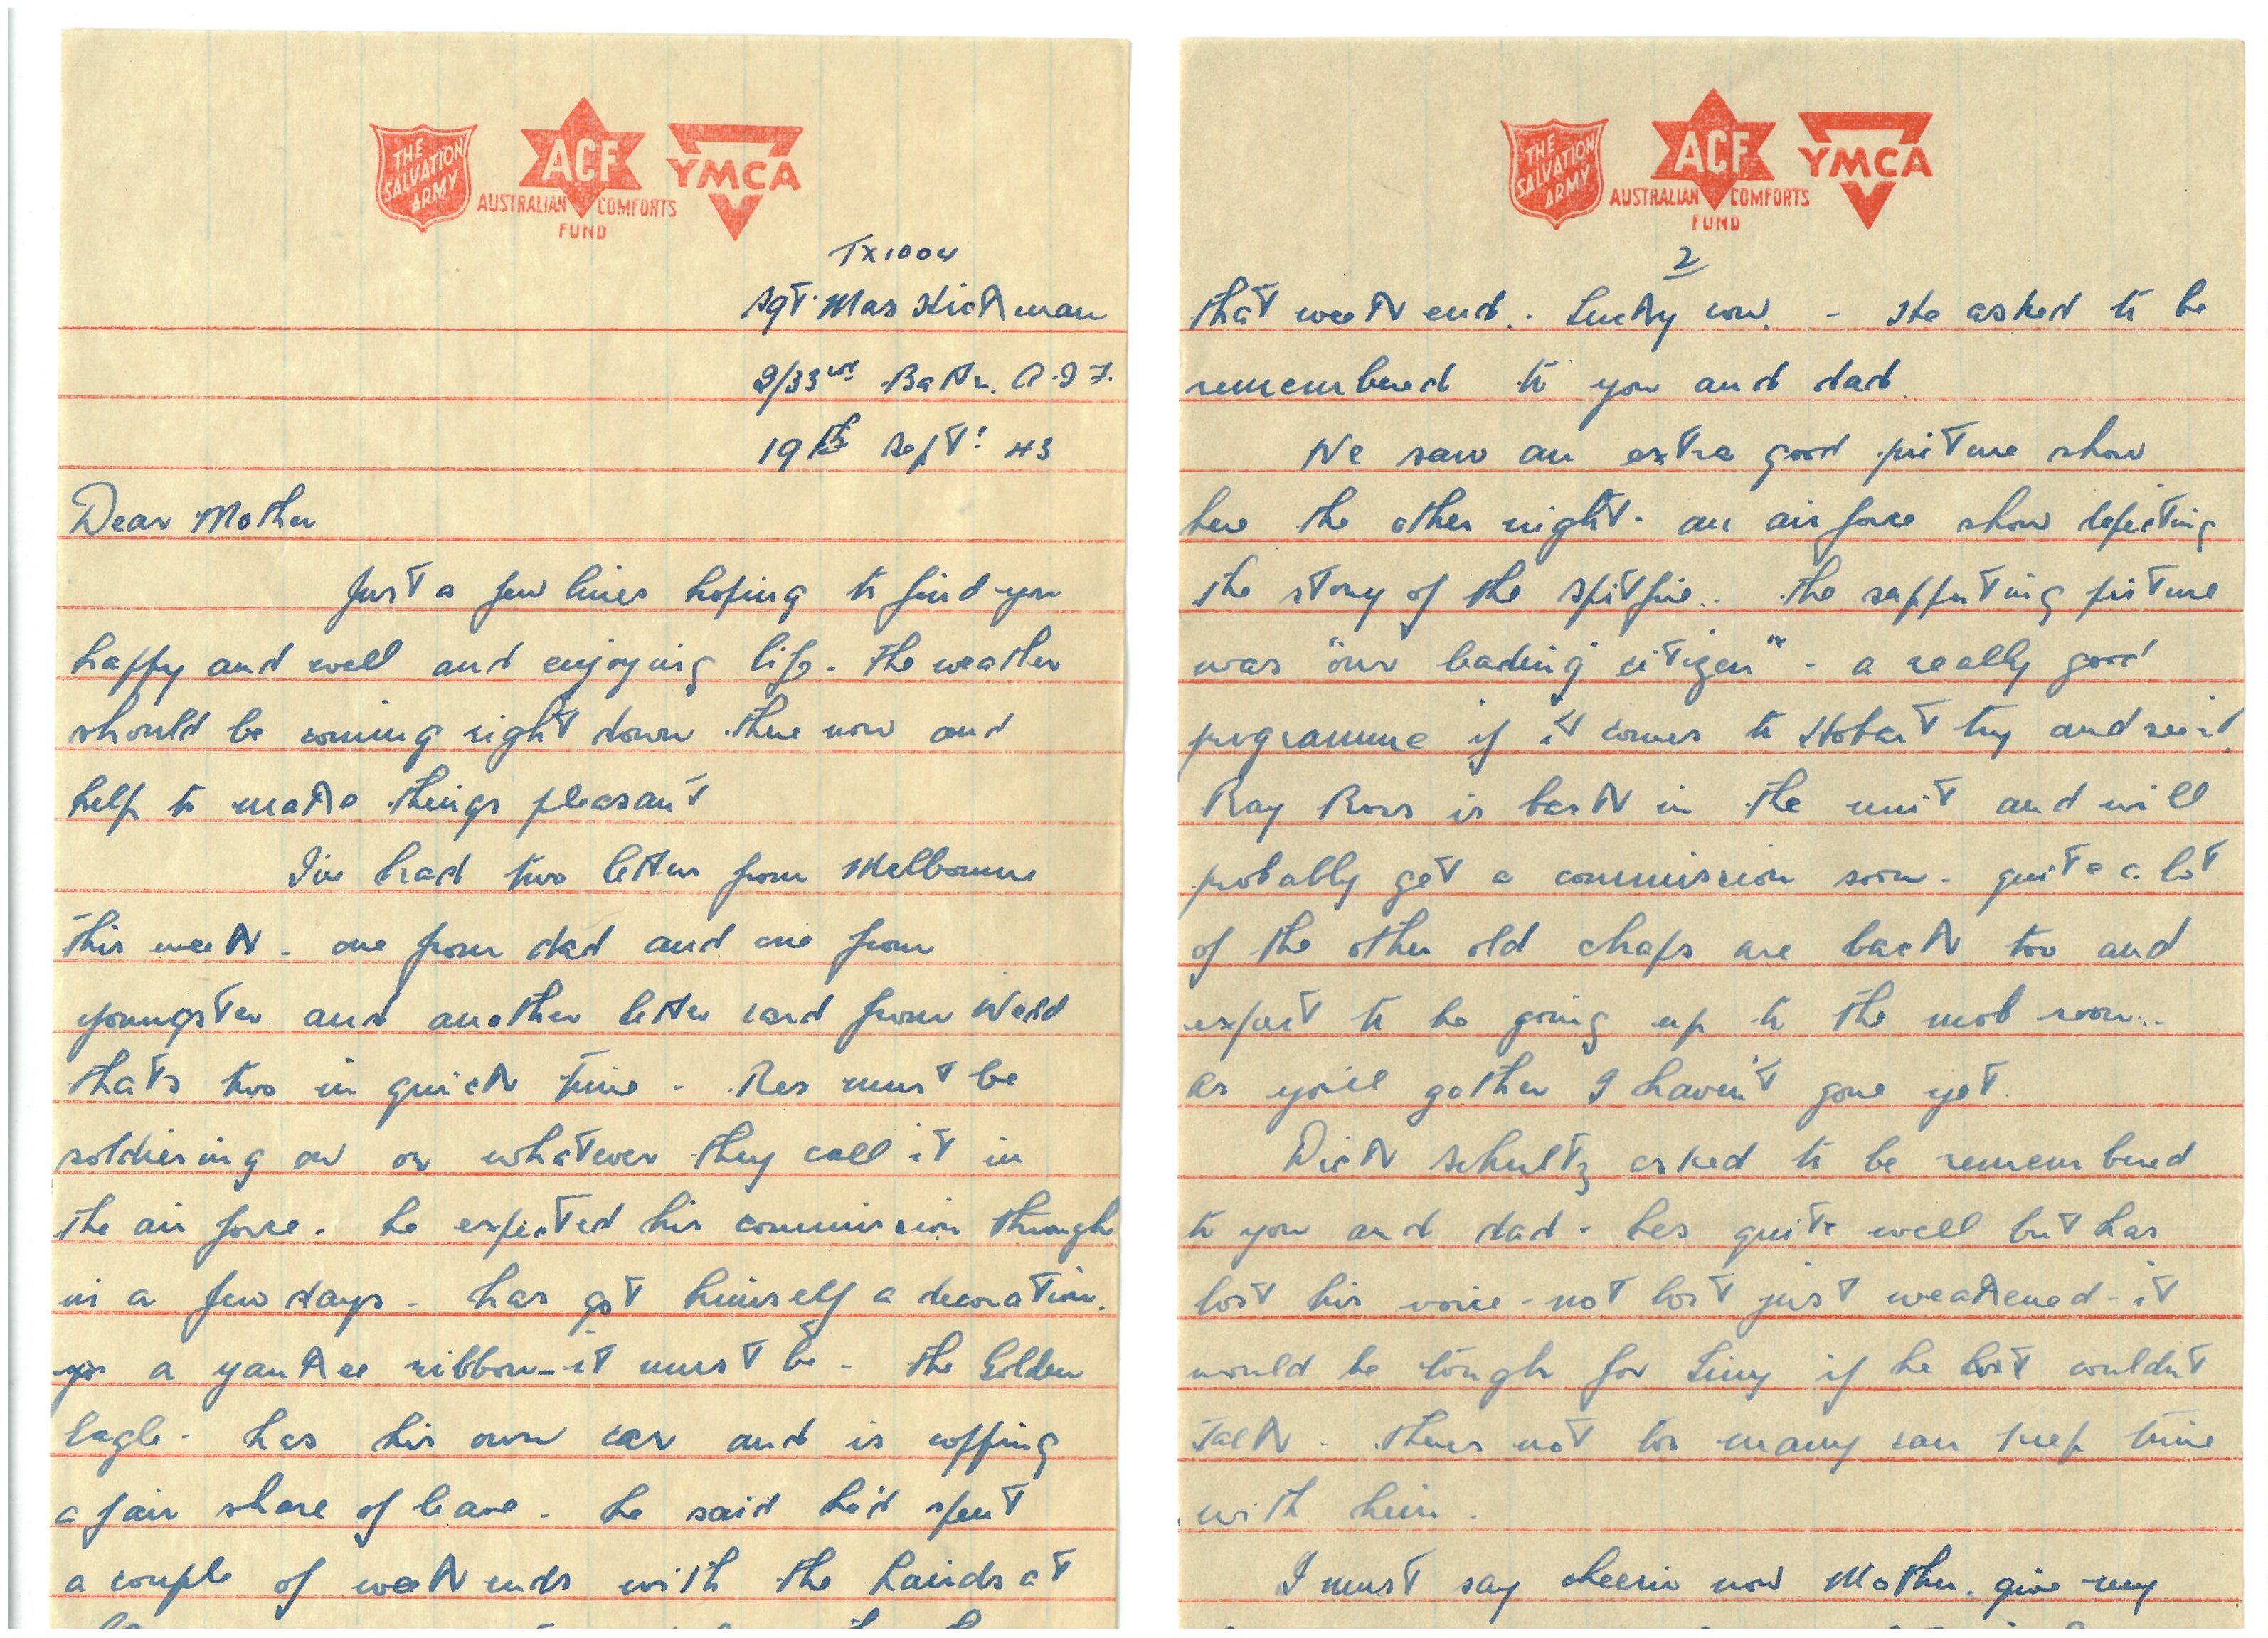 THE SALVATION ARMY
ACF
AUSTRALIAN COMFORTS FUND
YMCA
TX1004
Sgt. Max Hickman
2/33rd Battn. A.I.F.
19th Sept: 43
Dear Mother
Just a few lines hoping to find you
happy and well and enjoying life. the weather
should be coming right down there now and
help to make things pleasant
I've had two letters from Melbourne
this week. one from dad and one from
youngster and another letter card from
thats two in quick time. Res must be
soldiering on or whatever they call it in
the air force. he expected his commission through
in a few days. has got himself a decoration.
a yankee ribbon - it must be. the Golden
Eagle. has his own car and is copping
a fair share of leave. he said he'd spent
a couple of week ends with the hairds at
THE SALVATION ARMY
ACF
AUSTRALIAN COMFORTS FUND
YMCA
2
that week end. Lucky cow. - He asked to be
remembered to you and dad.
We saw an extra good picture show
here the other night. an air force show depicting
the story of the spitfire.. the supporting picture
was "our leading citizen" - a really good
programme if it comes to Hobart try and see it.
Ray Ross is back in the unit and will
probably get a commission soon. quite a lot
of the other old chaps are back too and
expect to be going up to the mob soon..
as you'll gather I haven't gone yet.
Dick Schultz asked to be remembered
to you and dad. hes quite well but has
lost his voice - not lost just weakened - it
would be tough for if he couldn't
talk. theres not too many can keep time
with him.
I must say cheerio now Mother. give my